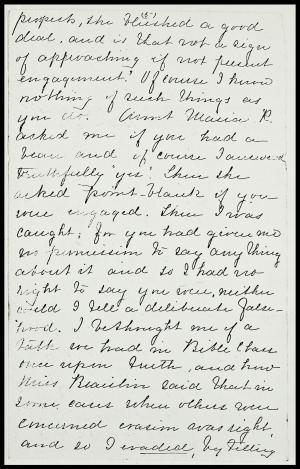 (5)
prospects, she blushed a good
deal, and is that not a sign
of approaching if not present
engagement? Of course I know
nothing of such things as
you do. Aunt Maria P.
asked me if you had a
beau and of course I answered
truthfully "yes". Then she
asked point-blank if you
were engaged. Then I was
caught; for you had given me
no permission to say any thing
about it and so I had no
right to say you were, neither
could I tell a deliberate false-
hood. I bethought me of a
talk we had in Bible Class
once upon truth, and how
Miss said that in
some cases when others were
concerned evasion was right,
and so I evaded, by telling